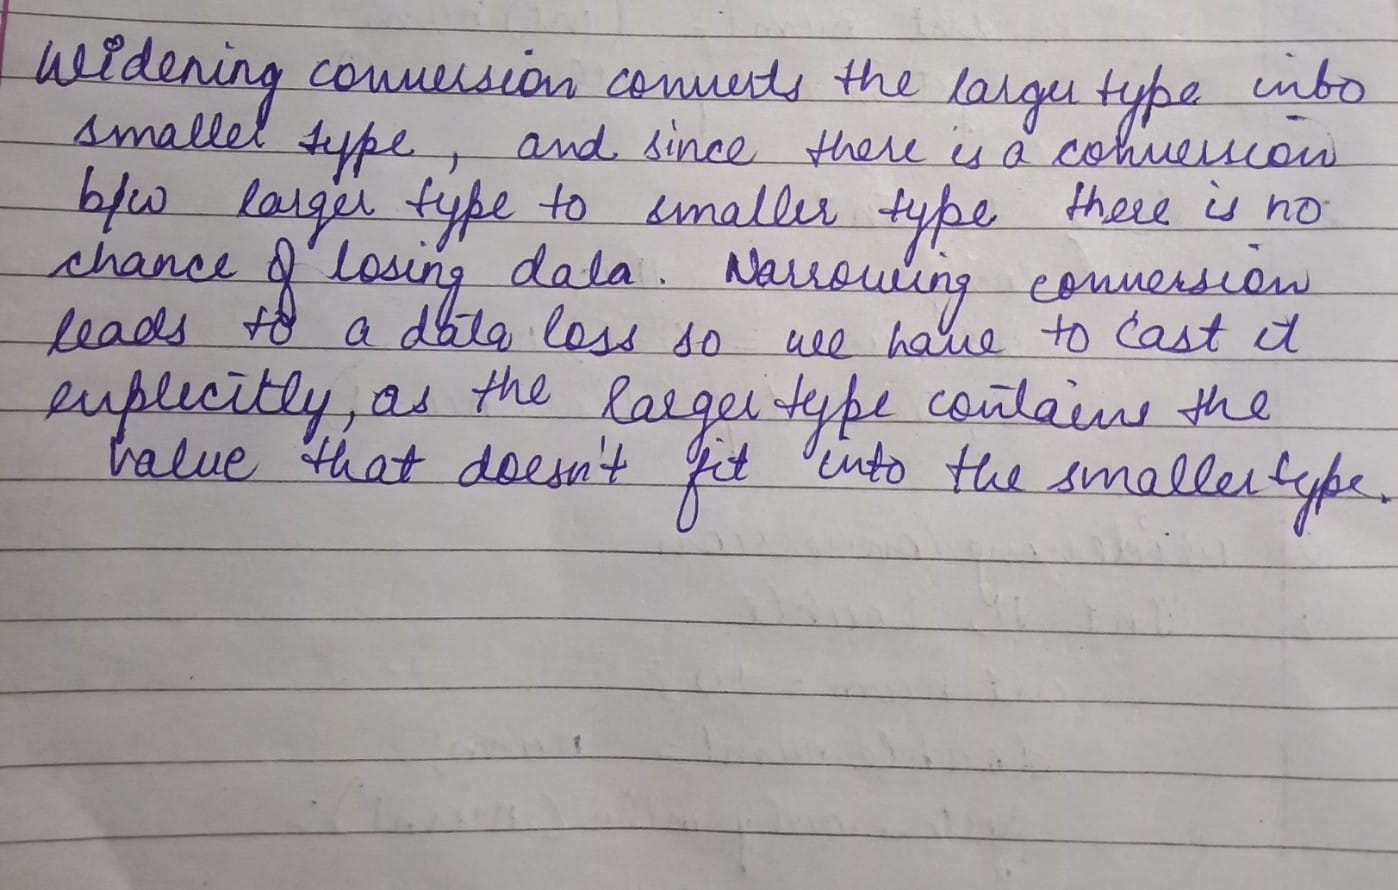 Widening conversion converts the larger type into
smaller type, and since there is a conversion
b/w larger type to smaller type there is no
chance of losing data. Narrowing conversion
leads to a data loss so we have to cast it
explicitly, as the larger type contains the
value that doesn't fit into the smaller type.